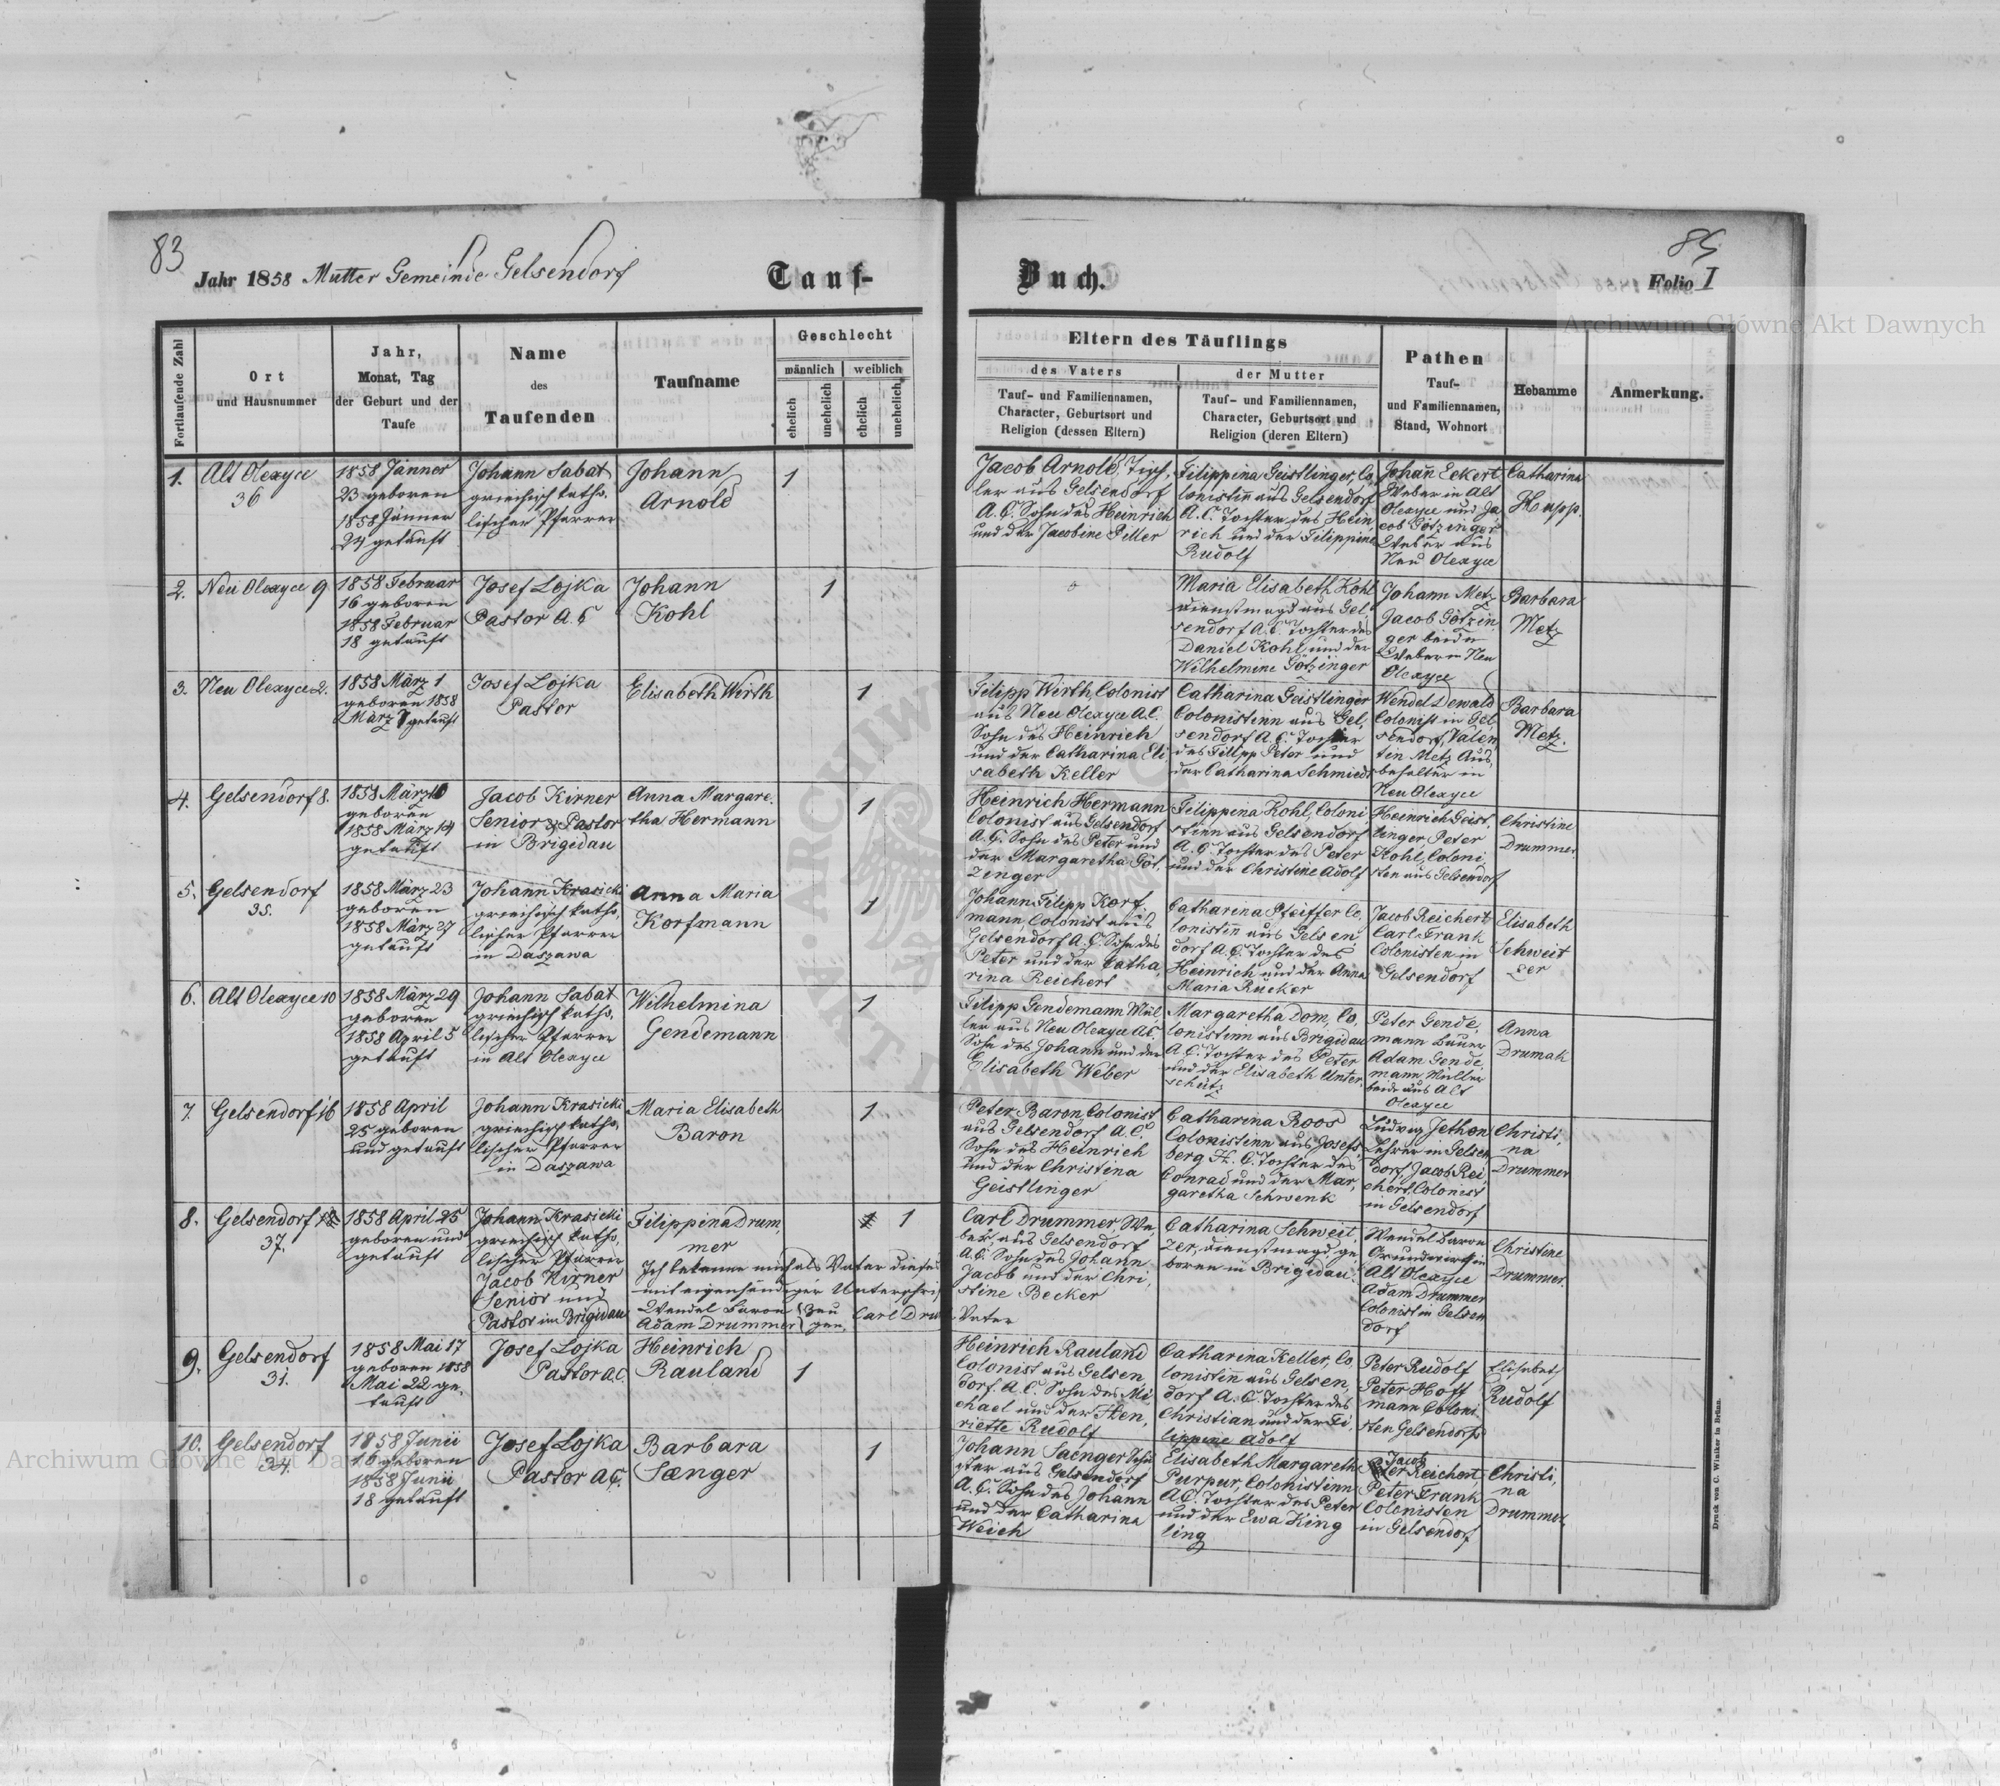 83
85
Jahr 1858 Mutter Gemeinde Gelsendorf
Tauf-
Buch.
Folio I
Archiwum Główne Akt Dawnych
Fortlaufende Zahl
Ort
und Hausnummer
Jahr,
Monat, Tag
der Geburt und der
Taufe
Name
des
Taufenden
Taufname
Geschlecht
männlich
weiblich
ehelich
unehelich
ehelich
unehelich
Eltern des Täuflings
des Vaters
Tauf- und Familiennamen,
Character, Geburtsort und
Religion (dessen Eltern)
der Mutter
Tauf- und Familiennamen,
Character, Geburtsort und
Religion (deren Eltern)
Pathen
Tauf-
und Familiennamen,
Stand, Wohnort
Hebamme
Anmerkung.
1.
Alt Olexyce
36
1858 Jänner
23 geboren
1858 Jänner
24 getauft
Johann Sabat
griechisch katho,
lischer Pfarrer
Johann
Arnold
1
Jacob Arnold, Tisch,
ler aus Gelsendorf
A.C. Sohn des Heinrich
und der Jacobine Piller
Filippina Geistlinger, Co,
lonistin aus Gelsendorf
A.C. Tochter des Hein,
rich und der Filippine
Rudolf
Johan Eckert
Weber in Alt
Olexyce und Ja
cob Götzinger
Weber aus
Neu Olexyce
Catharina
Hupp.
2.
Neu Olexyce 9
1858 Februar
16 geboren
1858 Februar
18 getauft
Josef Lojka
Pastor A.C
Johann
Kohl
1
Maria Elisabeth Kohl
Dienstmagd aus Gel
sendorf A.C. Tochter des
Daniel Kohl und der
Wilhelmine Götzinger
Johann Metz
Jacob Götzin
ger beide
Weber in Neu
Olexyce
Barbara
Metz
3.
Neu Olexyce 2.
1858 März 1
geboren 1858
März 7 getauft
Josef Lojka
Pastor
Elisabeth Wirth
1
Filipp Wirth Colonist
aus Neu Olexyce A.C.
Sohn des Heinrich
und der Catharina Eli
sabeth Keller
Catharina Geistlinger
Colonistinn aus Gel,
sendorf A.C. Tochter
des Filipp Peter und
der Catharina Schmied
Wendel Dewald
Colonist in Gel
sendorf, Valen,
tin Metz Aus,
behalter in
Neu Olexyce
Barbara
Metz.
4.
Gelsendorf 8.
1858 März 10
geboren
1858 März 14
getauft
Jacob Kirner
Senior & Pastor
in Brigidau
Anna Margare,
tha Hermann
1
Heinrich Hermann
Colonist aus Gelsendorf
A.C. Sohn des Peter und
der Margaretha Göt,
zenger
Filippina Kohl, Coloni
stinn aus Gelsendorf
A.C. Tochter des Peter
und der Christine Adolf
Heinrich Geist,
linger, Peter
Kohl, Coloni,
sten aus Gelsendorf
Christine
Drummer.
5.
Gelsendorf
35.
1858 März 23
geboren
1858 März 27
getauft
Johann Krasicki
griechisch katho,
lischer Pfarrer
in Daszawa
Anna Maria
Korfmann
1
Johann Filipp Korf,
mann, Colonist aus
Gelsendorf A.C. Sohn des
Peter und der Catha,
rina Reichert
Catharina Pfeiffer Co,
lonistin aus Gelsen,
dorf A.C. Tochter des
Heinrich und der Anna
Maria Rücker
Jacob Reichert
Carl Frank
Colonisten in
Gelsendorf
Elisabeth
Schweit
zer
6.
Alt Olexyce 10
1858 März 29
geboren
1858 April 5
getauft
Johann Sabat
griechisch katho,
lischer Pfarrer
in Alt Olexyce
Wilhelmina
Gendemann
1
Filipp Gendemann Mül,
ler aus Neu Olexyce A.C.
Sohn des Johann und der
Elisabeth Weber
Margaretha Dom, Co,
lonistinn aus Brigidau
A.C. Tochter des Peter
und der Elisabeth Unter,
schütz
Peter Gende,
mann Bauer
Adam Gende,
mann Müller
beide aus Alt
Olexyce
Anna
Drumak
7.
Gelsendorf 16
1858 April
25 geboren
und getauft
Johann Krasicki
griechisch katho,
lischer Pfarrer
in Daszawa
Maria Elisabeth
Baron
1
Peter Baron, Colonist
aus Gelsendorf A.C.
Sohn des Heinrich
und der Christina
Geistlinger
Catharina Roos
Colonistinn aus Josefs,
berg H.C. Tochter des
Conrad und der Mar,
garetha Schwenk
Ludwig Jethon
Lehrer in Gelsen
dorf, Jacob Rei,
chert, Colonist
in Gelsendorf
Christi,
na
Drummer
8.
Gelsendorf
37.
1858 April 25
geboren und
getauft
Johann Krasicki
griechisch katho,
lischer Pfarrer
Jacob Kirner
Senior und
Pastor in Brigidau
Filippina Drum,
mer
Ich bekenne mich als Vater dieses
mit eigenhändiger Unterschrif
Wendel Baron } Zeu
Adam Drummer } gen.
Carl Drum
Vater
1
1
Carl Drummer, We,
ber, aus Gelsendorf
A.C. Sohn des Johann
Jacob und der Chri,
stine Becker
Catharina Schweit,
zer, Dienstmagd, ge
boren in Brigidau
Wendel Baron
Grundwirth in
Alt Olexyce
Adam Drummer
Colonist in Gelsen
dorf
Christine
Drummer.
9.
Gelsendorf
31.
1858 Mai 17
geboren 1858
Mai 22 ge,
tauft
Josef Lojka
Pastor A.C.
Heinrich
Rauland
1
Heinrich Rauland
Colonist aus Gelsen,
dorf. A.C. Sohn des Mi,
chael und der Hen,
riette Rudolf
Catharina Keller, Co,
lonistin aus Gelsen,
dorf A.C. Tochter des
Christian und der Fi,
lippine Adolf
Peter Rudolf
Peter Hoff
mann Coloni,
sten Gelsendorf
Elisabeth
Rudolf
10.
Gelsendorf
34.
1858 Junii
16 geboren
1858 Junii
18 getauft
Josef Lojka
Pastor A.C.
Barbara
Sænger
1
Johann Saenger Schu
ster aus Gelsendorf
A.C. Sohn des Johann
und der Catharina
Weich
Elisabeth Margaretha
Purpur, Colonistinn
A.C. Tochter des Peter
und der Ewa King
ling
Jacob
Reichert
Peter Frank
Colonisten
in Gelsendorf
Christi,
na
Drummer.
Archiwum Główne Akt Dawnych
Druck von C. Winiker in Brünn.